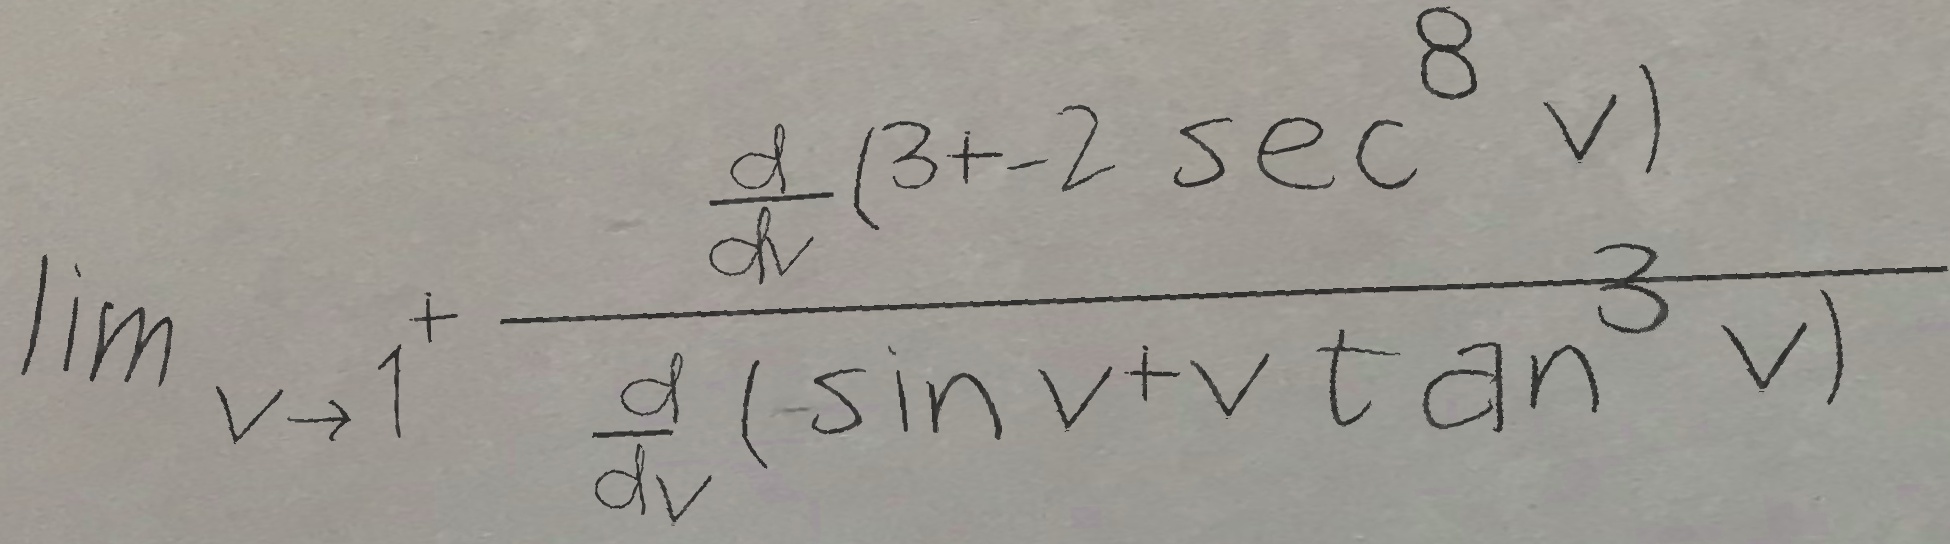 \lim_{v \to 1^+} \frac{\frac{d}{dv}(3+-2\sec^8 v)}{\frac{d}{dv}(-\sin v+v\tan^3 v)}